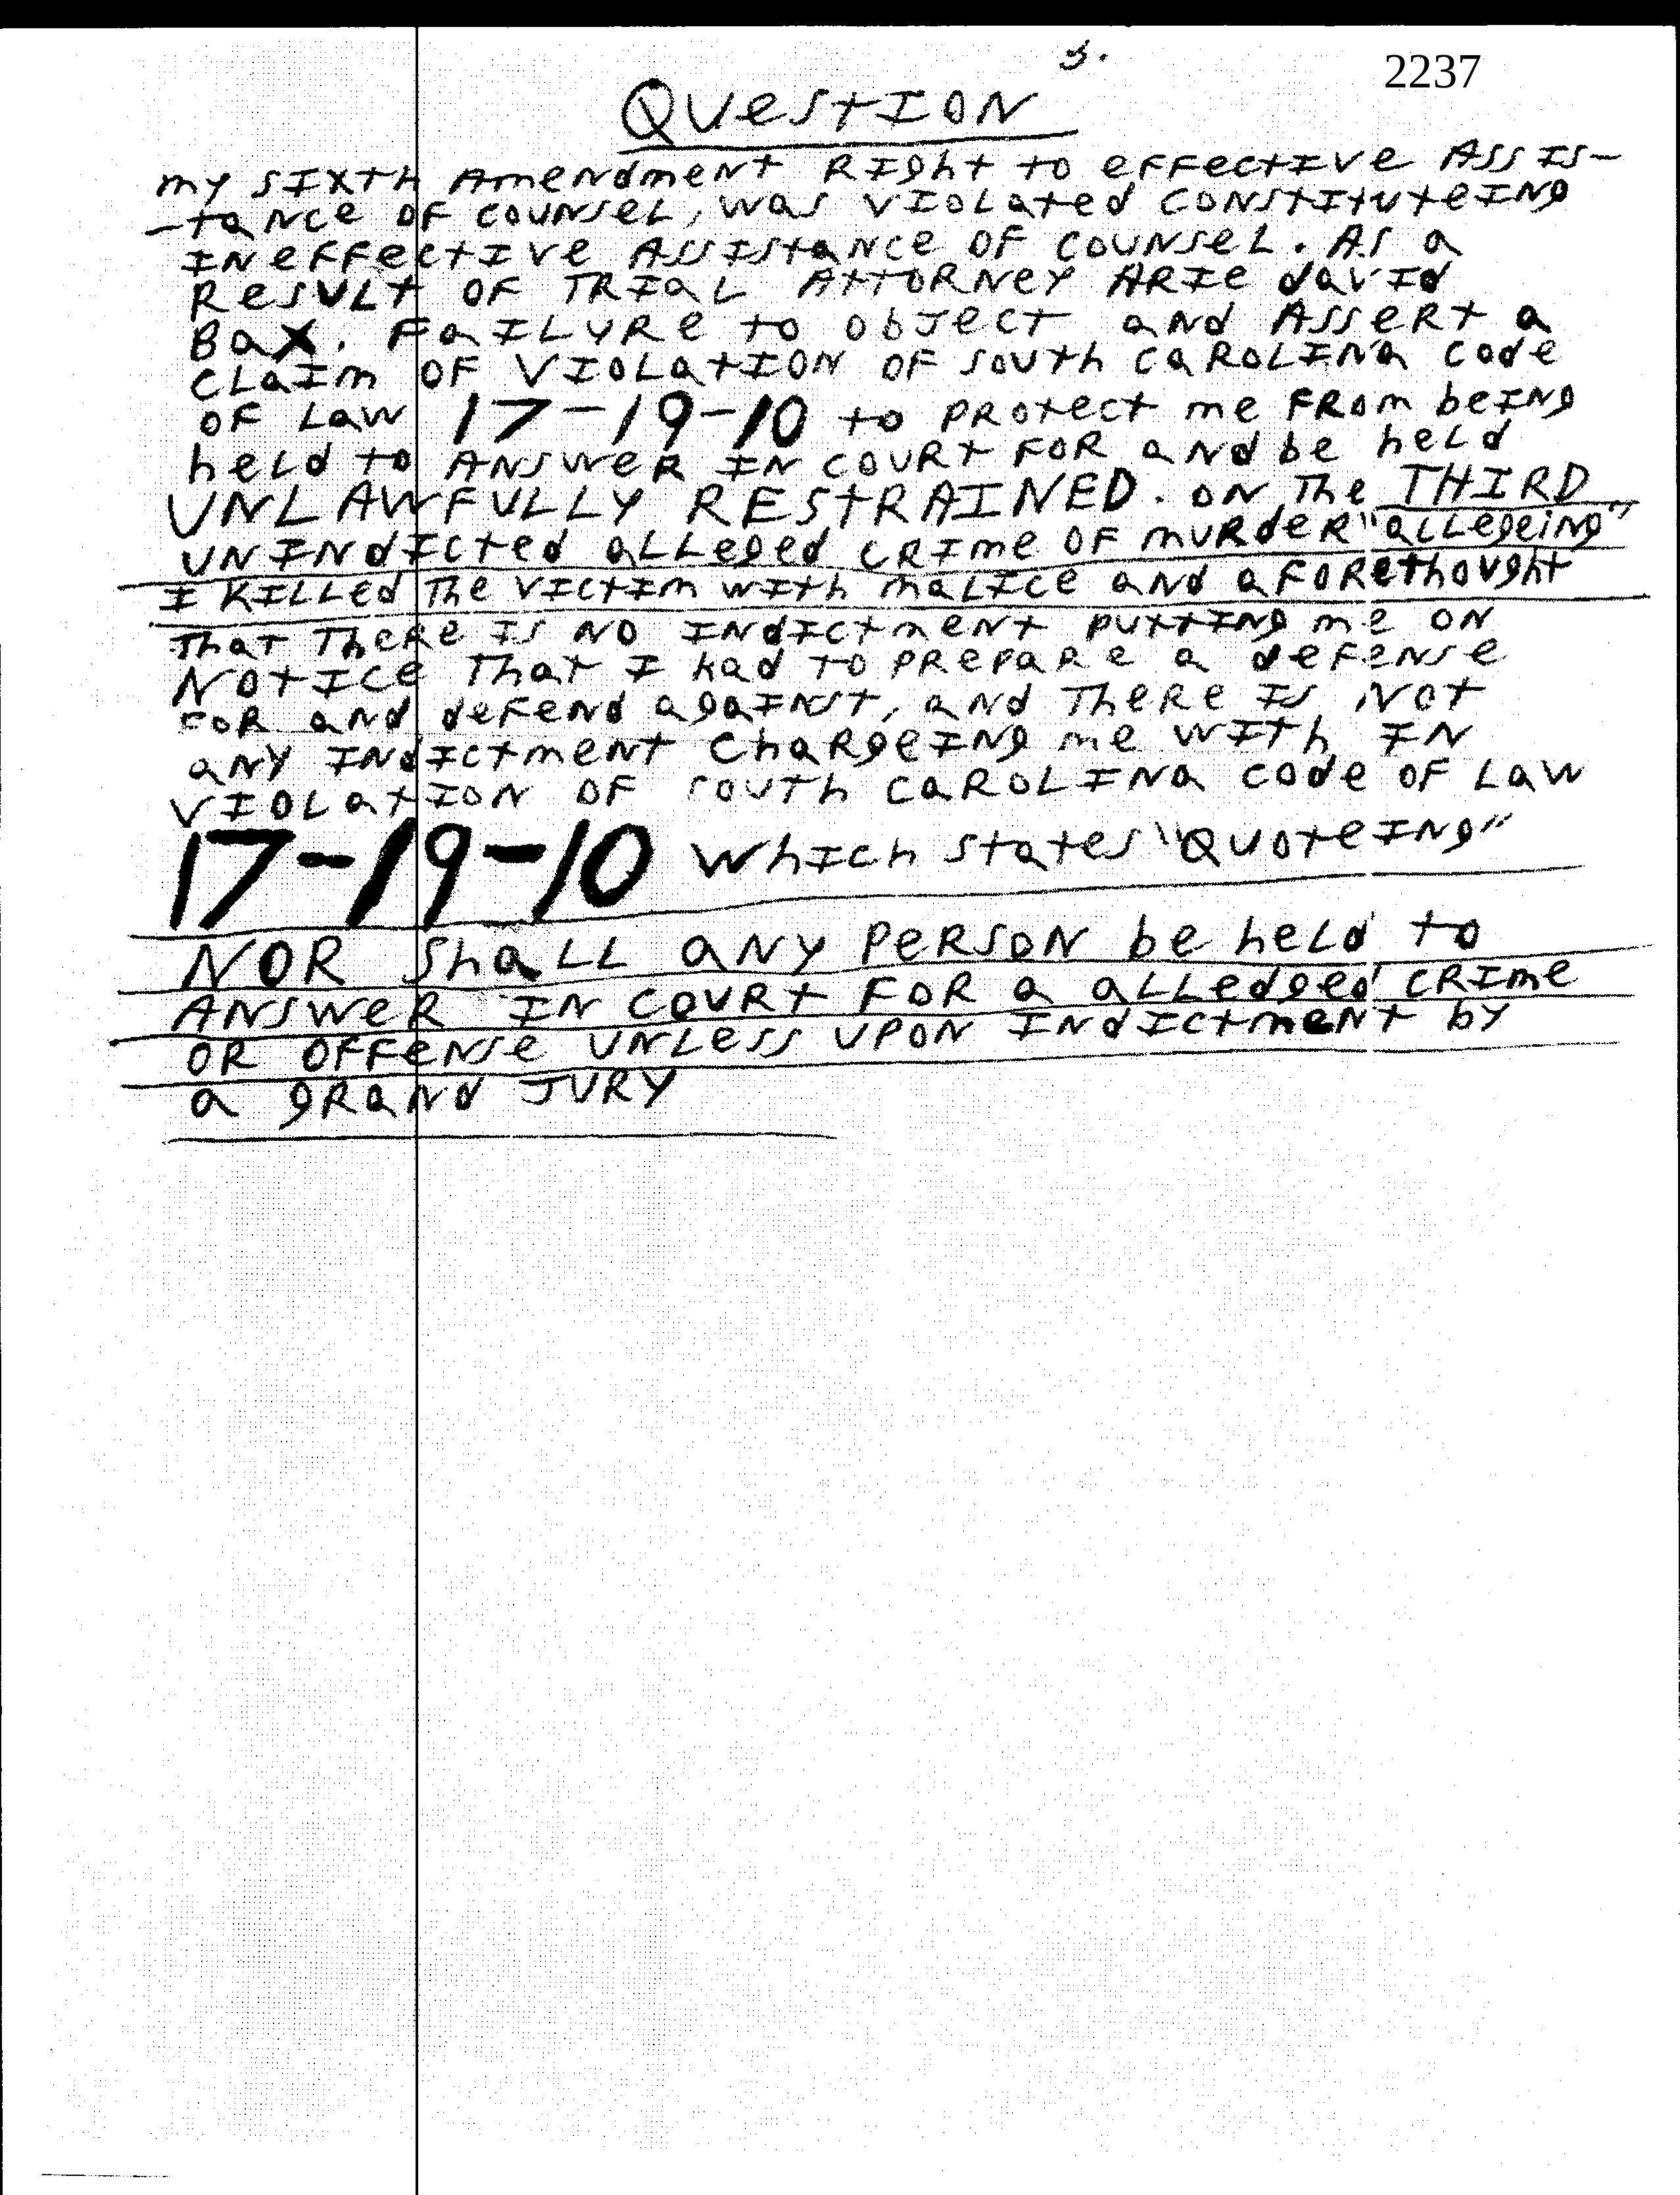 3.
2237
QUESTION
my SIXTH AmendmENT RIght to eFFectIve ASSIS-
-taNce OF COUNSEL, was VIOLated CONSTItuteING
INeFFectIve ASSIstaNce OF COUNSEL. AS a
RESULT OF TRIaL ATTORNEY ARIe davId
Bax. FaILURe to object aNd ASSERt a
CLaIm OF VIOLatION OF South CaROLINa Code
OF Law 17-19-10 to PROtect me FROM beING
heLd to ANSWeR IN COURt FOR aNd be heLd
UNLAWFULLY RESTRAINED. ON The THIRD
UNINdIcted aLLeged CRIme OF muRdeR "aLLegeing"
I KILLed The VIctIm WITh maLIce aNd aFORethought
That TheRe IS NO INdIctmeNt puttINg me ON
NOtIce That I had TO PRePaRe a deFeNSe
FOR aNd deFeNd agaINSt, aNd TheRe IS Not
aNY INdIctmeNT ChaRgeING me WITh IN
VIOLatION OF South CaROLINa Code OF Law
17-19-10 WhIch States "QuoteING"
NOR ShaLL aNY PeRSON be heLd to
ANSWeR IN COURt FOR a aLLedged CRIme
OR OFFeNSe UNLeSS UPON INdIctmeNt by
a gRaNd JURY